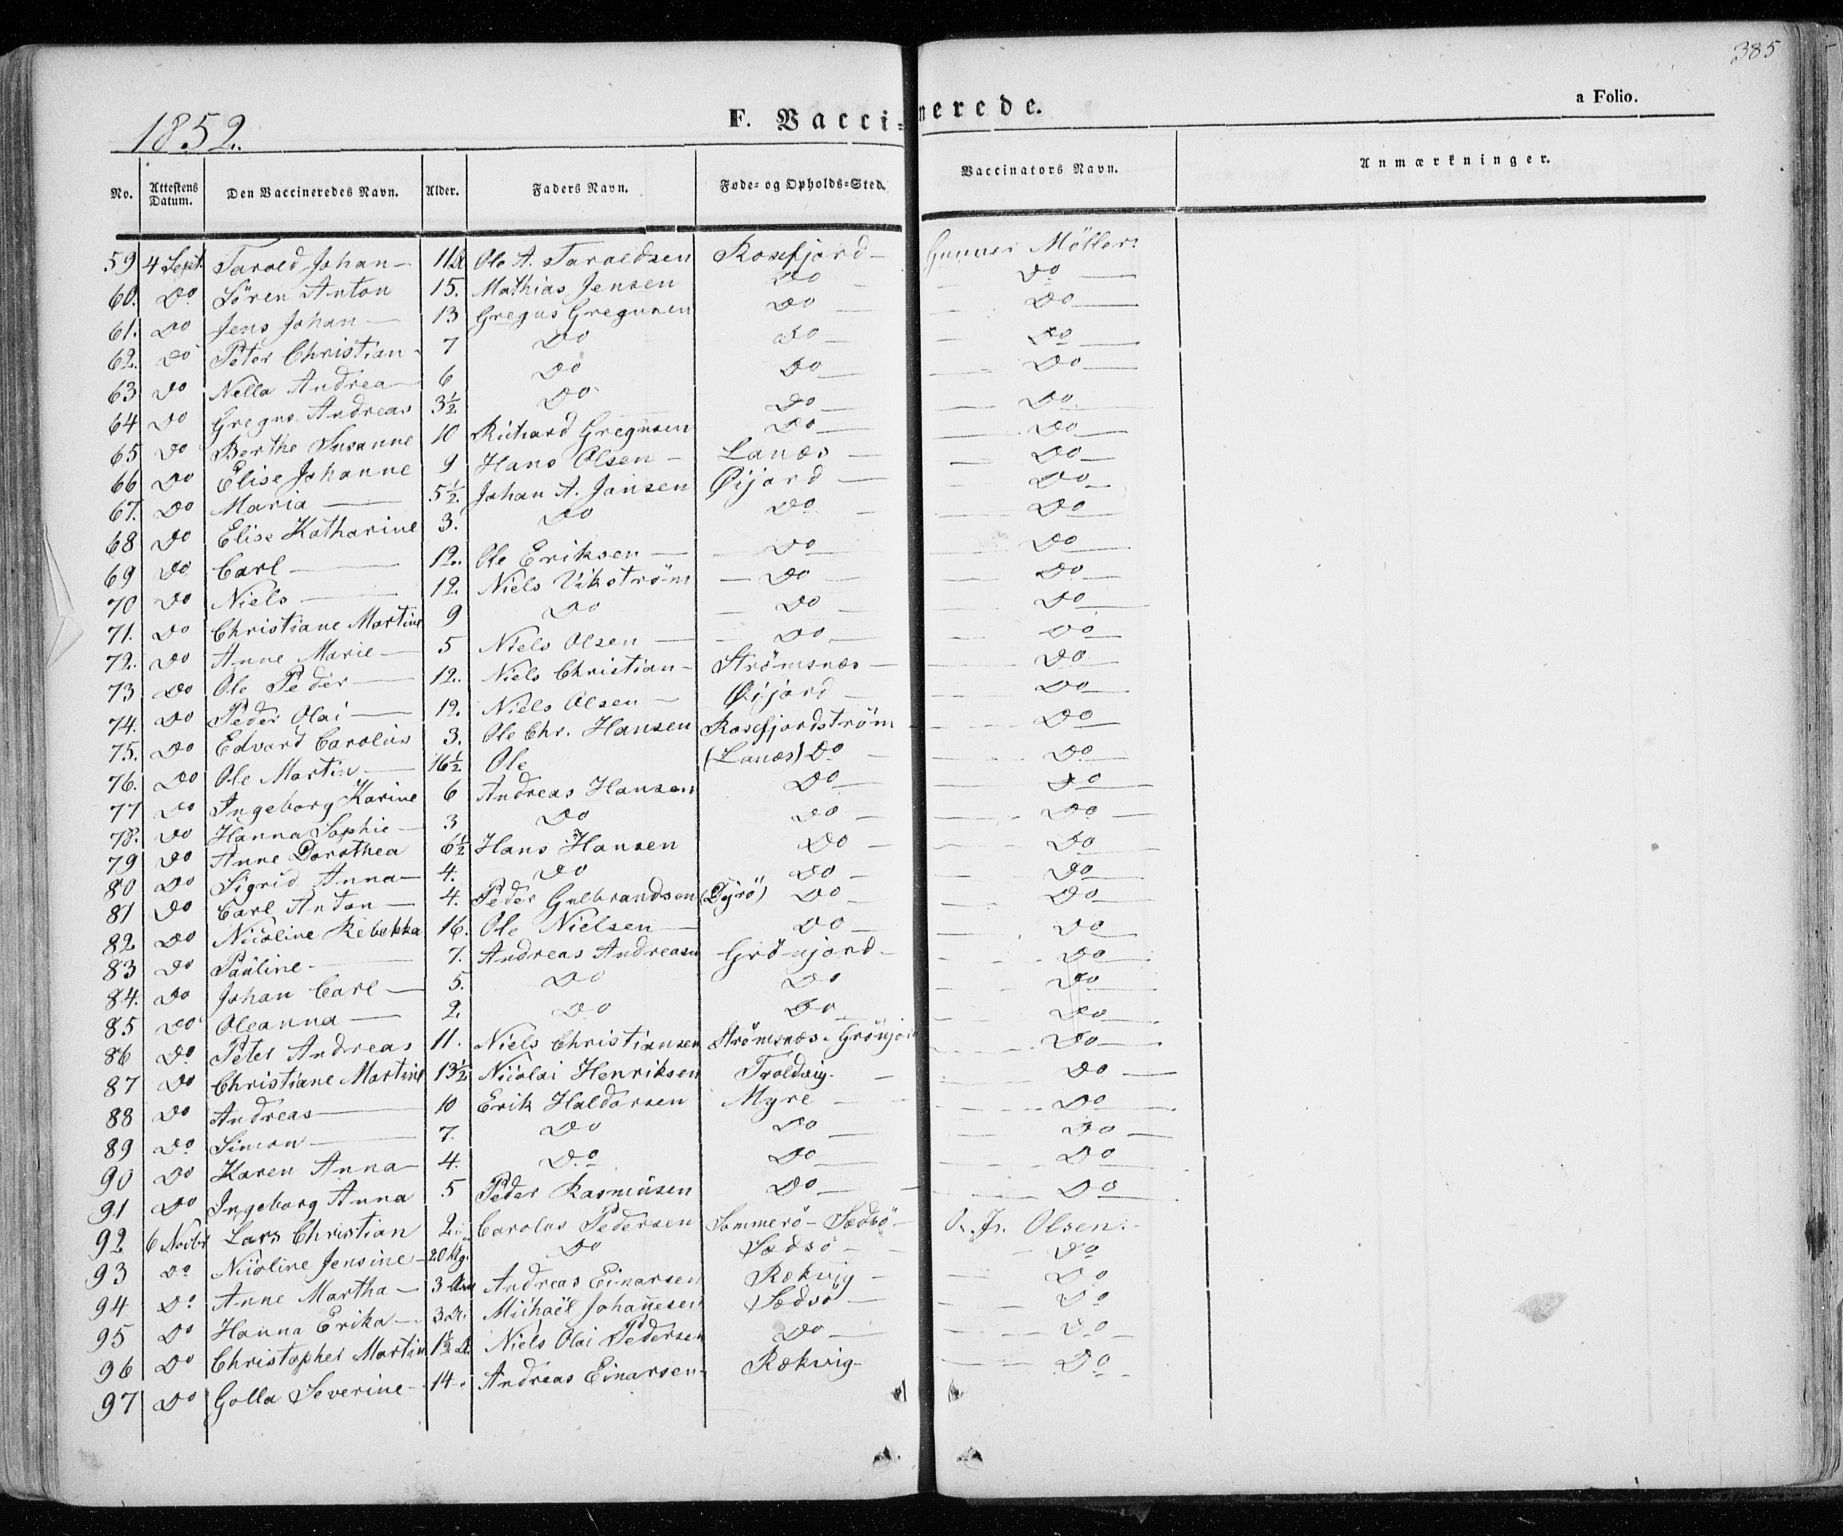 385
a Folio.
1852.
F. Vaccinerede.
No. Attestens Datum. Den Vaccineredes Navn. Alder. Faders Navn. Føde- og Opholds-Sted. Vaccinators Navn. Anmærkninger.
59 4 Sept. Tarald Johan 11 Ole A. Taraldsen Rosefjord Gunner Möller
60. Do Sören Anton 15. Mathias Jensen Do Do
61. Do Jens Johan 13 Gregus Gregusen Do Do
62. Do Peter Christian 7 Do Do Do
63 Do Nella Andrea 6 Do Do Do
64 Do Gregus Andreas 3½ Do Do Do
65 Do Berthe Susanne 10 Richard Gregusen Do Do
66 Do Elise Johanne 9 Hans Olsen Lanæs Do
67. Do Maria 5½. Johan A. Jansen Øijord Do
68 Do Elise Katharine 3. Do Do Do
69 Do Carl 12. Ole Eriksen Do Do
70 Do Niels 12. Niels Vikström Do Do
71. Do Christiane Martine 9 Do Do Do
72. Do Anne Marie 5 Niels Olsen Do Do
73 Do Ole Peder 12. Niels Christian Strømsnæs Do
74. Do Peder Olai 12. Niels Olsen Øijord Do
75. Do Edvard Carolus 3. Ole Chr. Hansen Rosefjordström Do
76. Do Ole Martin 16½ Ole (Lanæs) Do Do
77 Do Ingeborg Karine 6 Andreas Hansen Do Do
78. Do Hanna Sophie 3 Do Do Do
79 Do Anne Dorothea 6½ Hans Hansen Do Do
80 Do Sigrid Anna 4. Do Do Do
81 Do Carl Anton 4. Peder Gulbrandsen (Dyrö) Do Do
82 Do Nicoline Rebekka 16. Ole Nielsen Do Do
83 Do Pauline 7. Andreas Andreasen Grönjord Do
84. Do Johan Carl 5. Do Do Do
85 Do Oleanna 2. Do Do Do
86 Do Peter Andreas 11. Niels Christiansen Strömsnæs Grönjord Do
87 Do Christiane Martine 13½ Nicolai Henriksen Troldvig Do
88 Do Andreas 10 Erik Haldorsen Myre Do
89 Do Simon 7. Do Do Do
90 Do Karen Anna 4. Do Do Do
91 Do Ingeborg Anna 5 Peder Rasmusen Do Do
92 6 Novbr Lars Christian 2. Carolus Pedersen Sommerö Sædsö O. Js. Olsen
93 Do Nicoline Jensine 20 Do Sædsö Do
94 Do Anne Martha 3 Andreas Einarsen Rækvig Do
95 Do Hanna Erika 3 Michaël Johannesen Sædsö Do
96 Do Christopher Martin 1½ Niels Olai Pedersen Do Do
97 Do Golla Severine 14. Andreas Einarsen Rækvig Do